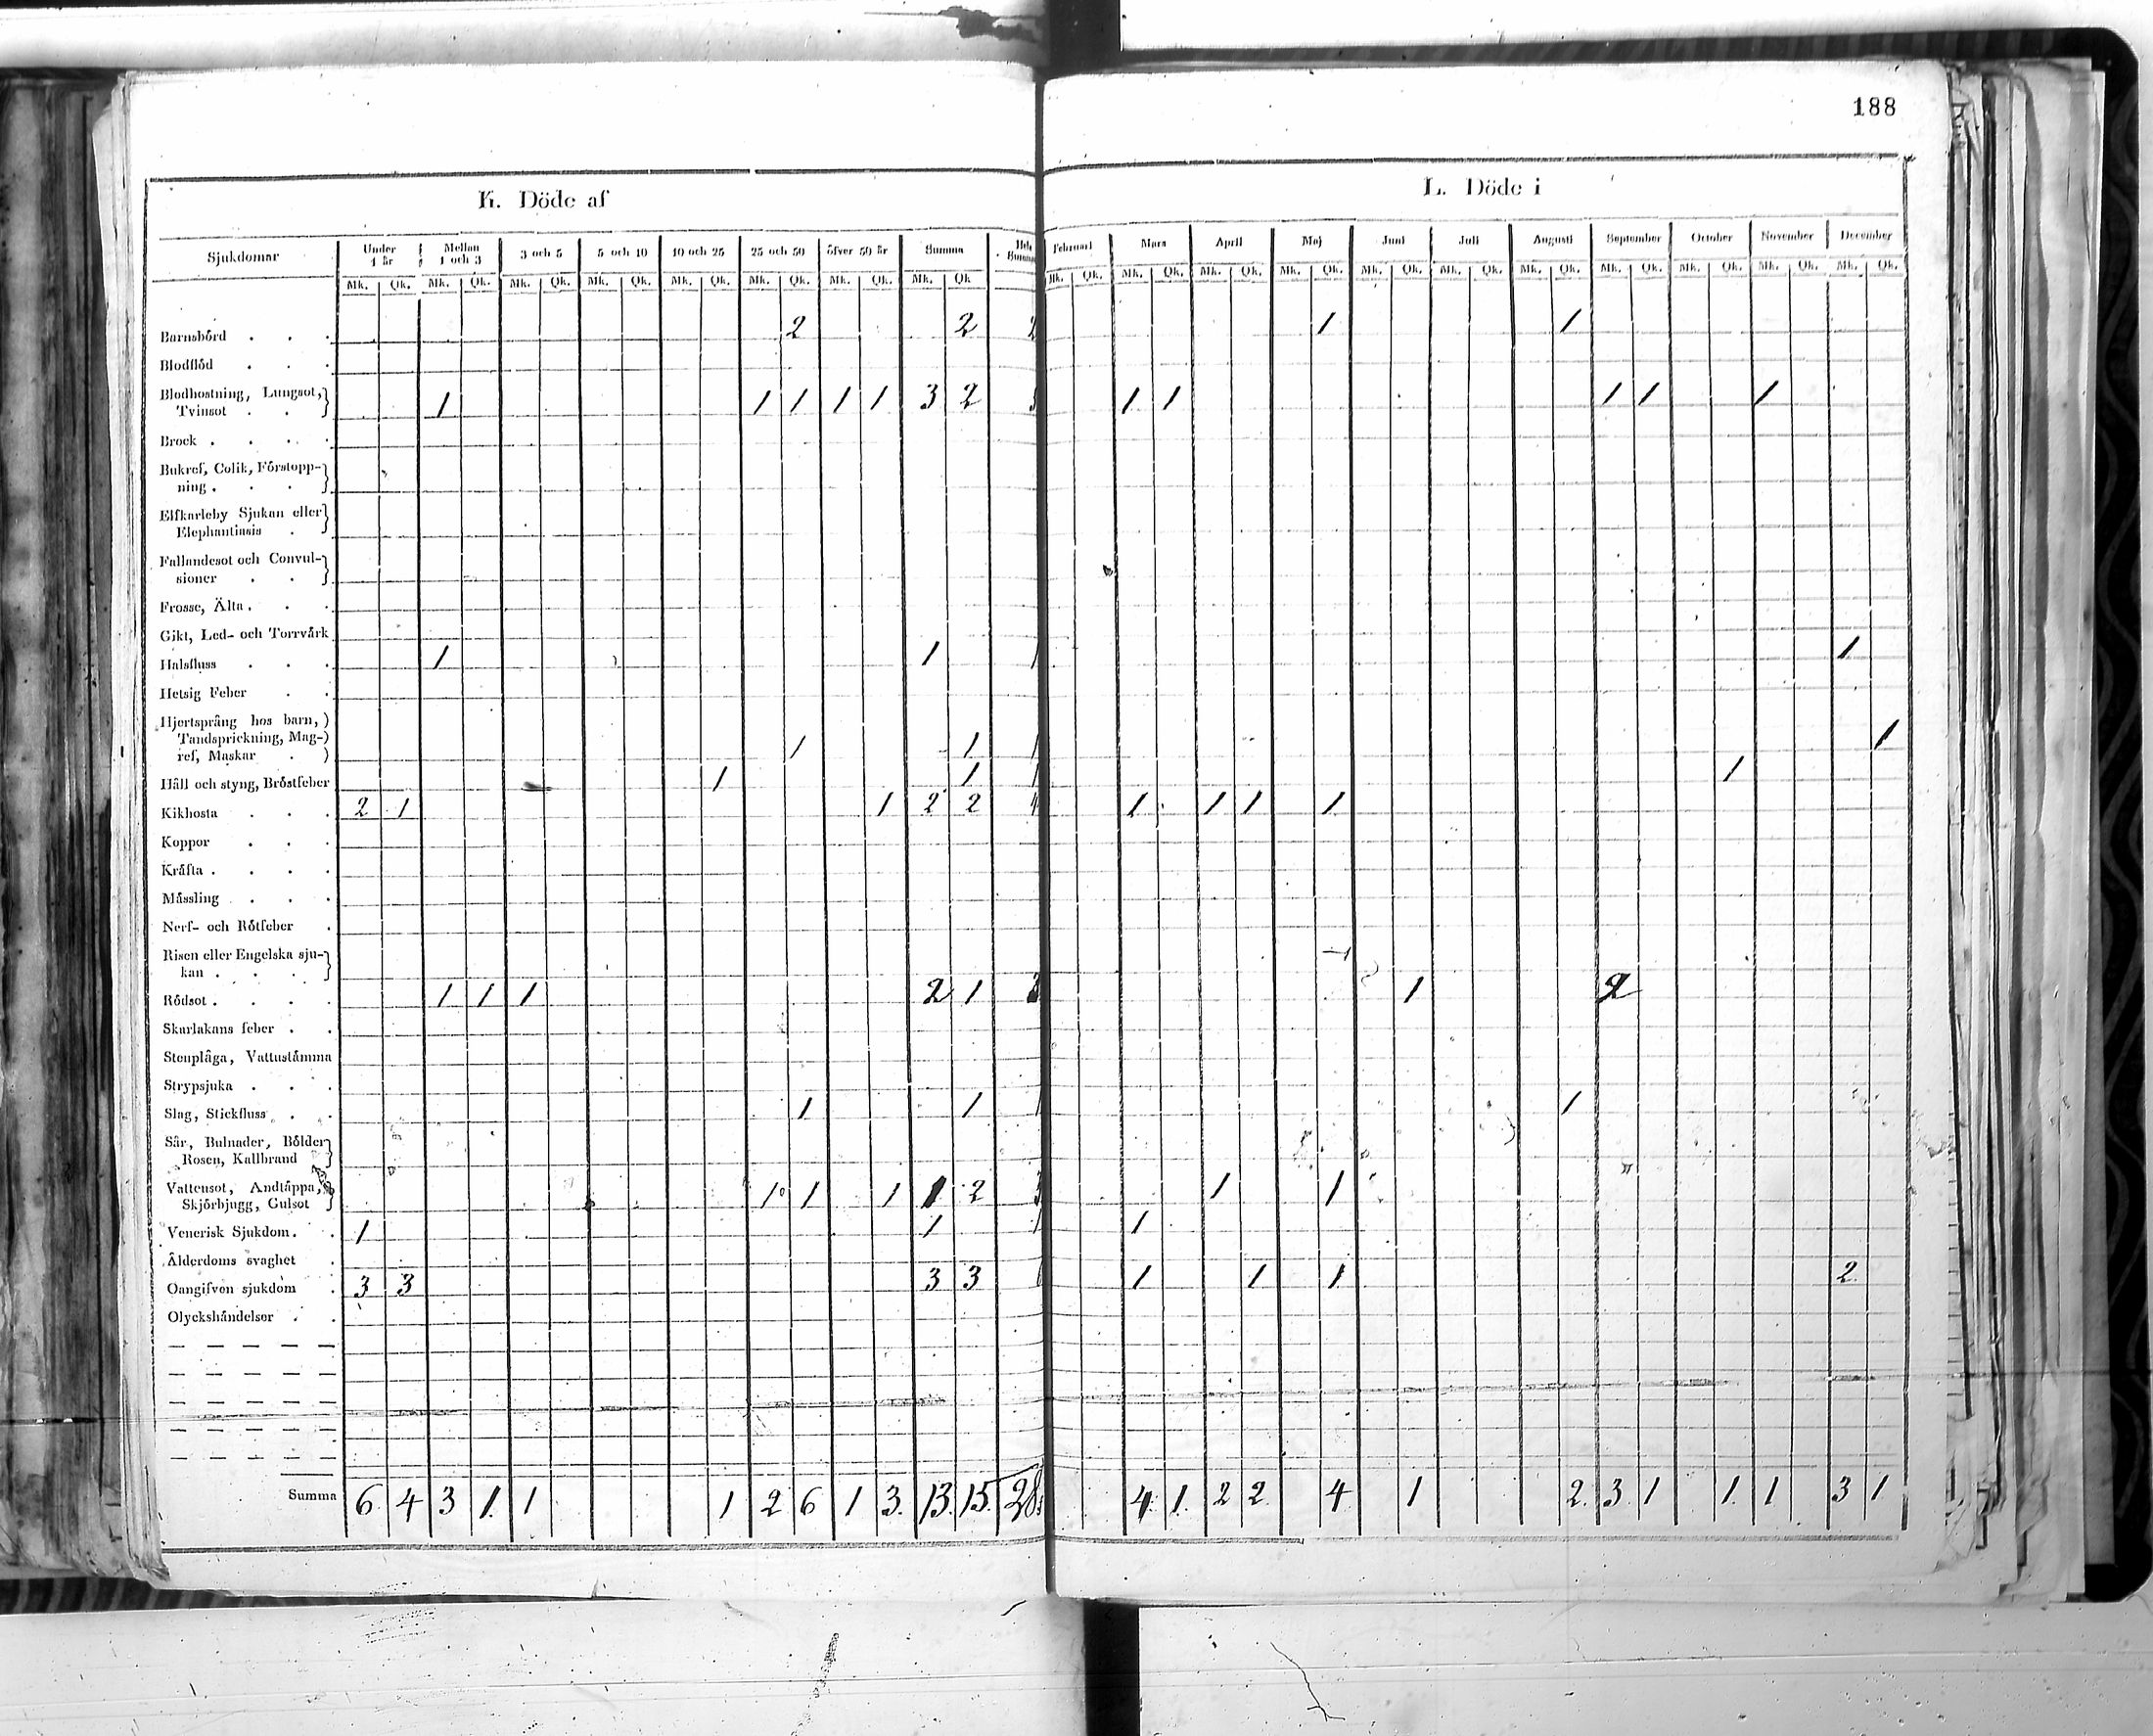 188
K. Döde af
Sjukdomar Under 1 år Mellan 1 och 3 3 och 5 5 och 10 10 och 25 25 och 50 öfver 50 år Summa
Mk. Qk. Mk. Qk. Mk. Qk. Mk. Qk. Mk. Qk. Mk. Qk. Mk. Qk. Mk. Qk
Barnsbörd . . . 2 2
Blodflöd . . .
Blodhostning, Lungsot,
Tvinsot . . 1 1 1 1 1 3 2
Brock . . . .
Bukref, Colik, Förstopp-
ning . . .
Elfkarleby Sjukan eller
Elephantiasis .
Fallandesot och Convul-
sioner . .
Frosse, Älta . . .
Gikt, Led- och Torrvärk
Halsfluss . . . 1 1 1
Hetsig Feber . .
Hjertsprång hos barn,
Tandsprickning, Mag-
ref, Maskar . 1 1 1
Håll och styng, Bröstfeber 1 1 1
Kikhosta . . . 2 1 1 2 2 4
Koppor . . .
Kräfta . . . .
Mässling . . .
Nerf- och Rötfeber .
Risen eller Engelska sju-
kan . . .
Rödsot . . . . 1 1 1 2 1
Skarlakans feber . .
Stenplåga, Vattustämma
Strypsjuka . . .
Slag, Stickfluss . . 1 1 1
Sår, Bulnader, Bölder
Rosen, Kallbrand
Vattensot, Andtäppa,
Skjörbjugg, Gulsot 1 1 1 1 2 3
Venerisk Sjukdom . . 1 1 1
Ålderdoms svaghet .
Oangifven sjukdom . 3 3 3 3
Olyckshändelser . .
Summa 6 4 3 1 1 1 2 6 1 3 13 15 28
L. Döde i
Februari Mars April Maj Juni Juli Augusti September October November December
Mk. Qk. Mk. Qk. Mk. Qk. Mk. Qk. Mk. Qk. Mk. Qk. Mk. Qk. Mk. Qk. Mk. Qk. Mk. Qk. Mk. Qk.
1 1
1 1 1 1 1
1
1
1
1 1 1 1
1 2
1
1 1
1
1 1 1 2
4 1 2 2 4 1 2 3 1 1 1 3 1